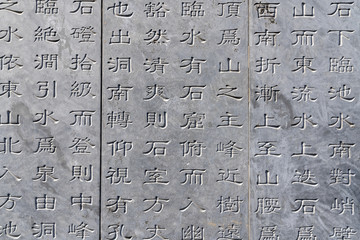 石下臨池水南對峭壁
山而東流水上迭石爲
西南折漸上至山腰爲
頂爲山之主峰近樹
臨水有石窟俯而入幽
豁然清爽則石室方丈
也出洞南轉仰視有孔
石磴拾級而登則中峰
臨絶澗引水爲泉由洞
水依東山北入方池